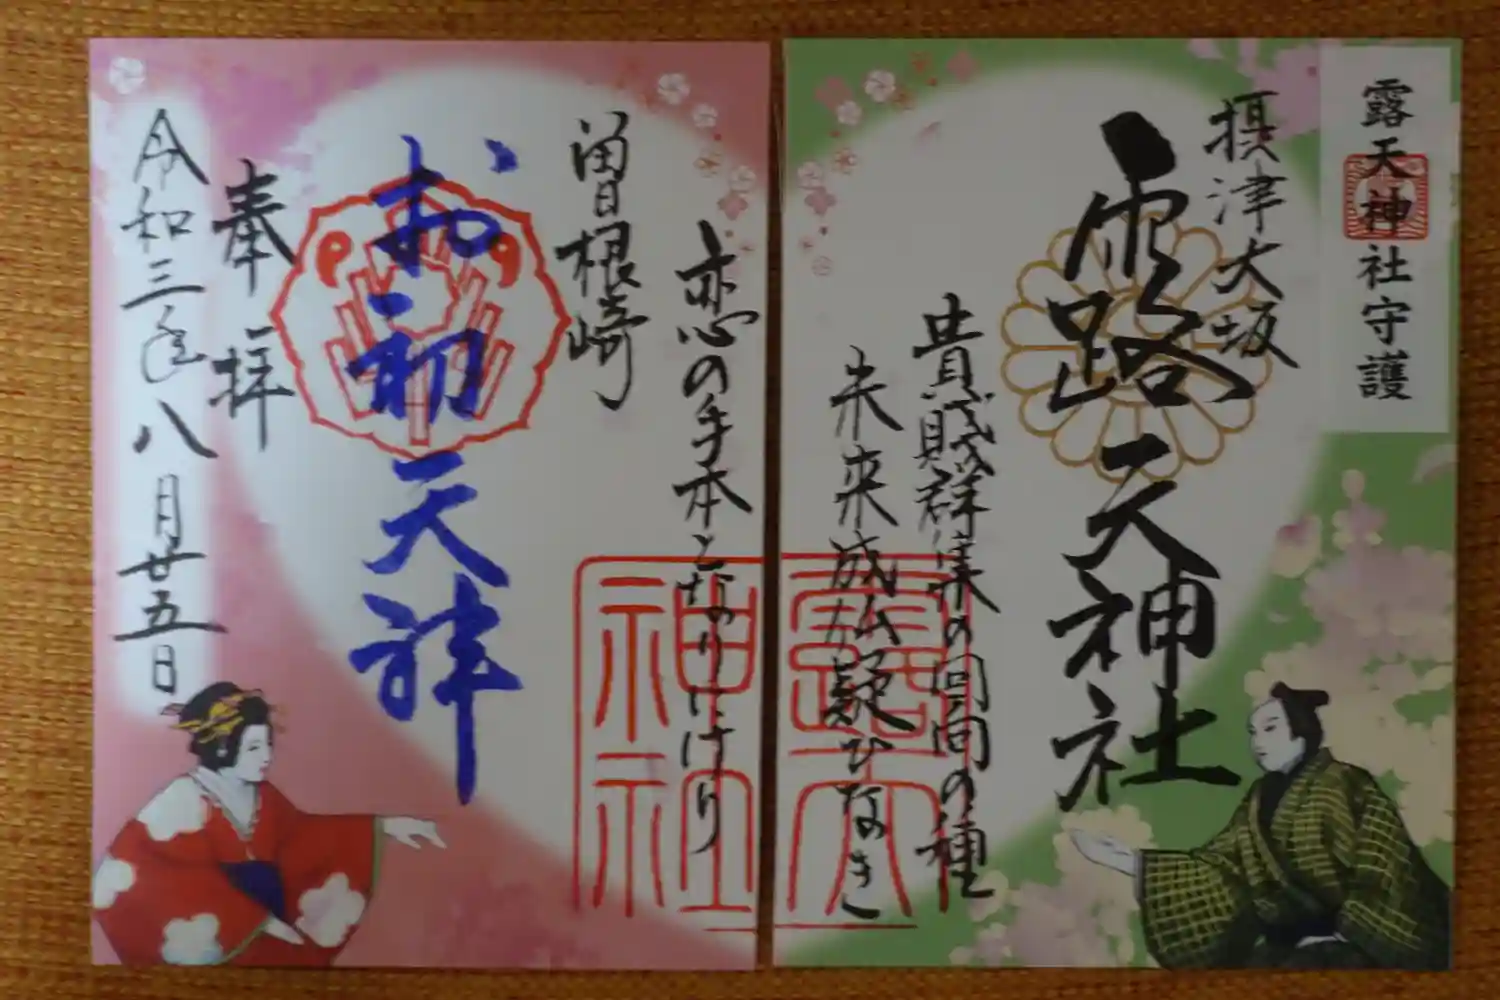 露天神社守護
摂津大坂
露天神社
貴賎群集の回向の種
未来成仏疑ひなき
恋の手本となりにけり
曽根崎
お初天神
奉拝
令和三年八月廿五日
露天
神社